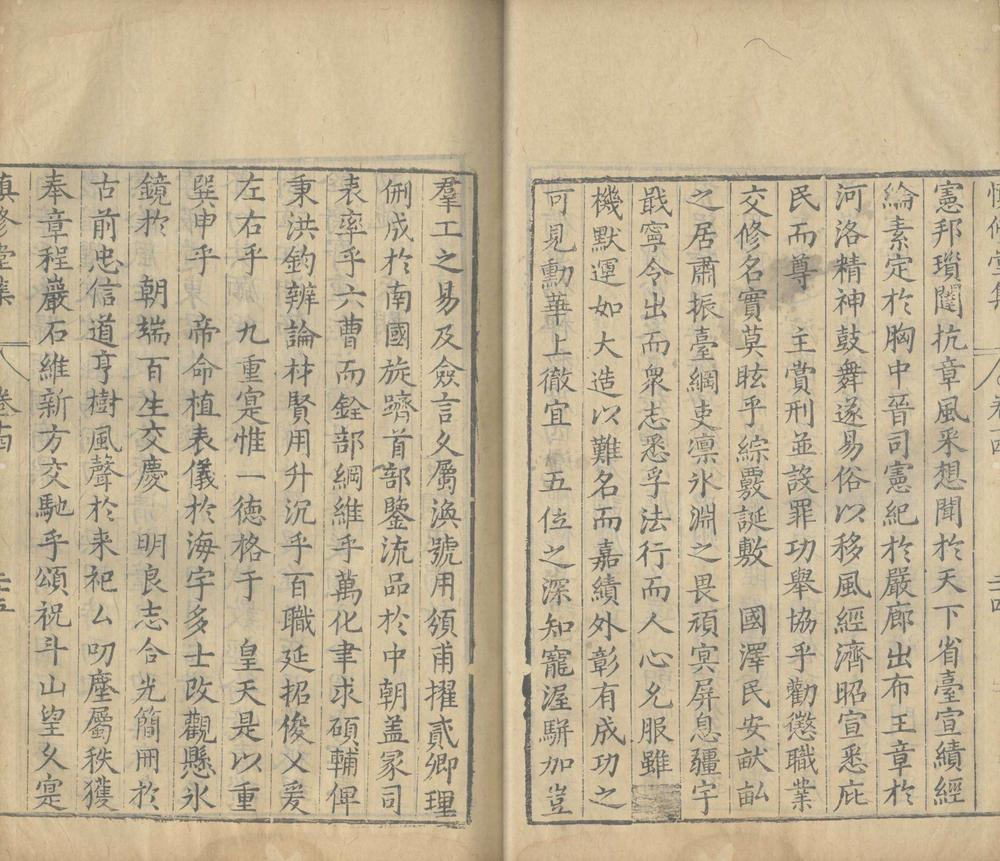 憲邦瑣闥抗章風采想聞於天下省臺宣績經
綸素定於胸中晉司憲紀於嚴廊出布王章於
河洛精神鼓舞遂易俗以移風經濟昭宣悉庇
民而尊　主賞刑並設罪功舉協乎勸懲職業
交修名實莫眩乎綜覈誕敷　國澤民安畎畝
之居肅振臺綱吏凛氷淵之畏頑冥屏息疆宇
戢寧令出而衆志悉孚法行而人心允服雖
機默運如大造以難名而嘉績外彰有成功之
可見勳華上徹宜　五位之深知寵渥駢加豈
羣工之易及僉言乆屬渙號用頒甫擢貳卿理
侀成於南國旋躋首部鑒流品於中朝盖冢司
表率乎六曹而銓部綱維乎萬化聿求碩輔俾
秉洪鈞辨論材賢用升沉乎百職延招俊乂爰
左右乎　九重寔惟一德格于　皇天是以重
巽申乎　帝命植表儀於海宇多士改觀懸氷
鏡於　朝端百生交慶　明良志合光簡冊於
古前忠信道亨樹風聲於来祀厶叨塵屬秩獲
奉章程巖石維新方交馳乎頌祝斗山望乆寔
修堂集　卷十四　二十五